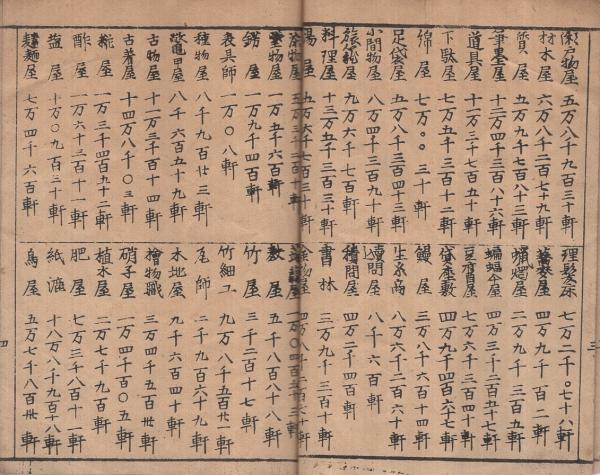 瀬戸物屋 五万八千九百三十軒
材木屋 六万八千二百七十九軒
質屋 五万九千七百八十三軒
筆墨屋 十二万四千三百八十六軒
道具屋 十一万三千七百五十軒
下駄屋 七万五千三百十二軒
綿屋 七万〇〇三十軒
足袋屋 五万八千三百四十三軒
小間物屋 八万四千三百九十軒
旅籠屋 九万六千七百軒
料理屋 十三万五千三百三十軒
湯屋 五万六千七百三十軒
理髪床 七万二千〇七十八軒
蕎麦屋 四万九千百二軒
蝋燭屋 四万九千三百五軒
蝙蝠傘屋 四万三千二百五十七軒
豆腐屋 七万六千三百四十軒
貸座敷 九万四千四百六十七軒
鰻屋 三万八千六百十四軒
生糸商 八万六千二百六十軒
読問屋 八千六百軒
積問屋 四万二千四百軒
書林 三万九千三百軒
金物屋
漆物屋 三万三千三百十軒
一万五千六百軒
錺屋 一万九千四百軒
表具師 一万〇八軒
種物屋 八千九百廿三軒
鼈甲屋 八千六百五十九軒
古物屋 十一万三千百十四軒
古着屋 十四万八千〇三軒
糀屋 一万三千四百九十二軒
酢屋 一万六千三百十一軒
塩屋 十万〇九百三十軒
麺屋 七万四千六百軒
一万〇四百三十三軒
数屋 五千八百八十八軒
竹屋 三千二百十七軒
竹細工 九万八千五百廿一軒
瓦師 二千九百六十九軒
木地屋 九千六百四十軒
檜物職 三万四千五百廿軒
硝子屋 一万四千百〇五軒
植木屋 二万七千九百軒
肥屋 七万三千八百十一軒
紙漉 十八万八千九百十八軒
鳥屋 五万七千八百廿軒
三
四